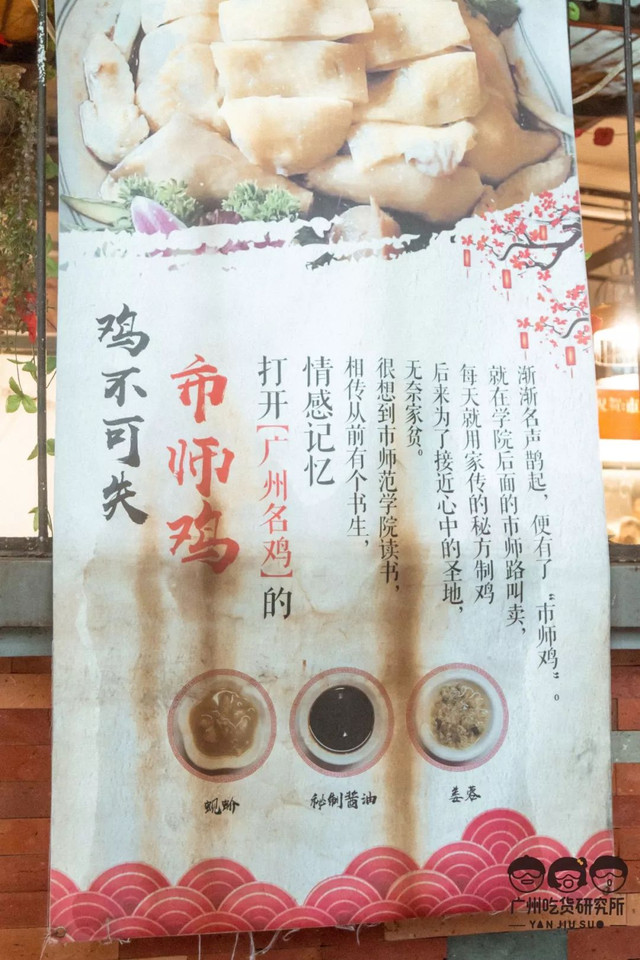 鸡不可失
市师鸡
打开【广州名鸡】的
情感记忆
相传从前有个书生，
很想到市师范学院读书，
无奈家贫。
后来为了接近心中的圣地，
每天就用家传的秘方制鸡
就在学院后面的市师路叫卖，
渐渐名声鹊起，便有了“市师鸡”。
蚬蚧
秘制酱油
姜蓉
广州吃货研究所
YAN JIU SUO